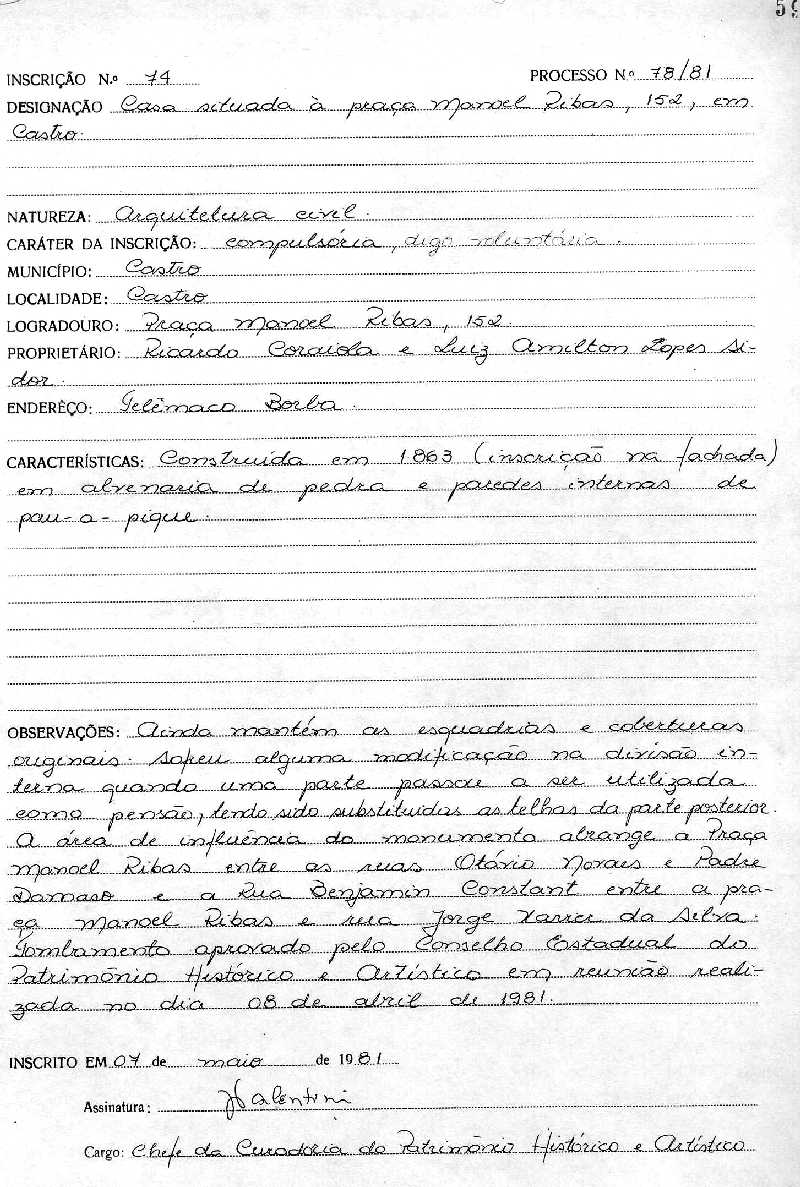 59
INSCRIÇÃO N.º 74 PROCESSO N.º 78/81
DESIGNAÇÃO Casa situada à praça Manoel Ribas, 152, em
Castro.
NATUREZA: Arquitetura civil.
CARÁTER DA INSCRIÇÃO: compulsória, digo voluntária.
MUNICÍPIO: Castro
LOCALIDADE: Castro
LOGRADOURO: Praça Manoel Ribas, 152.
PROPRIETÁRIO: Ricardo Coraiola e Luiz Amilton Lopes Si-
dor.
ENDERÊÇO: Telêmaco Borba.
CARACTERÍSTICAS: Construída em 1863 (inscrição na fachada)
em alvenaria de pedra e paredes internas de
pau-a-pique.
OBSERVAÇÕES: Ainda mantém as esquadrias e coberturas
originais. Sofreu alguma modificação na divisão in-
terna quando uma parte passou a ser utilizada
como pensão, tendo sido substituídas as telhas da parte posterior.
A área de influência do monumento abrange a Praça
Manoel Ribas entre as ruas Otávio Novaes e Padre
Damaso e a Rua Benjamin Constant entre a pra-
ça Manoel Ribas e rua Jorge Xavier da Silva.
Tombamento aprovado pelo Conselho Estadual do
Patrimônio Histórico e Artístico em reunião reali-
zada no dia 08 de abril de 1981.
INSCRITO EM 07 de maio de 1981
Assinatura: Valentini
Cargo: Chefe da Curadoria do Patrimônio Histórico e Artístico